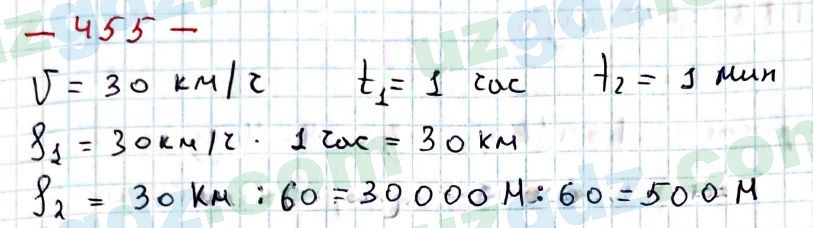 — 455 —
V = 30 км/ч t₁ = 1 час t₂ = 1 мин
S₁ = 30 км/ч · 1 час = 30 км
S₂ = 30 км : 60 = 30000 м : 60 = 500 м